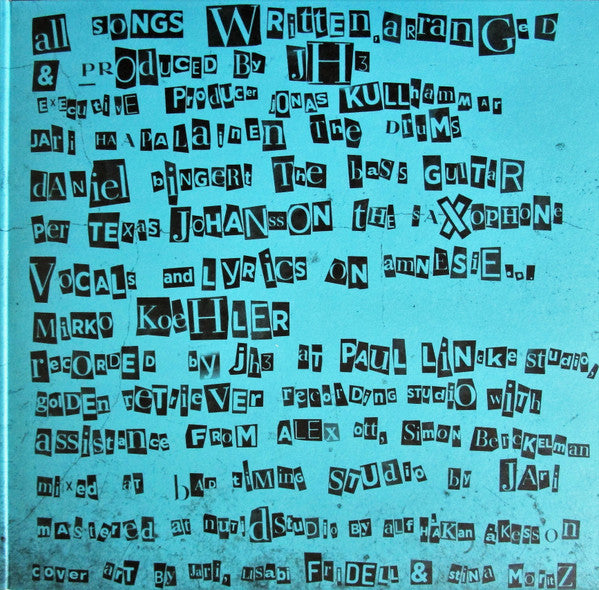 all SONGS WRitten, aRRanGeD
& PRODUCED By JH3
EXECUTIVE PRODUCer JONAS KULLHammAR
JARi HAAPALAiNEN THE DRUMS
dANiel biNGERt The bass GUitaR
PER TEXAS JOHANSsON THE sAXOPHONE
VOCALs and LYRiCS ON amNESiE...
MiRKO KOeHLER
RecORDED by jh3 AT PAUL LiNcke studio,
golDEN ReTRieVER RecORDiNG STUDiO WiTH
assistance FROM ALEX ott, Simon Berckelman
mixed AT bAD tiMiNG STUDiO by JARi
masteRed at nutid studio By alf HÅkan ÅKESSON
COVER ART By Jari, Lisabi FRiDELL & stina MoRitZ